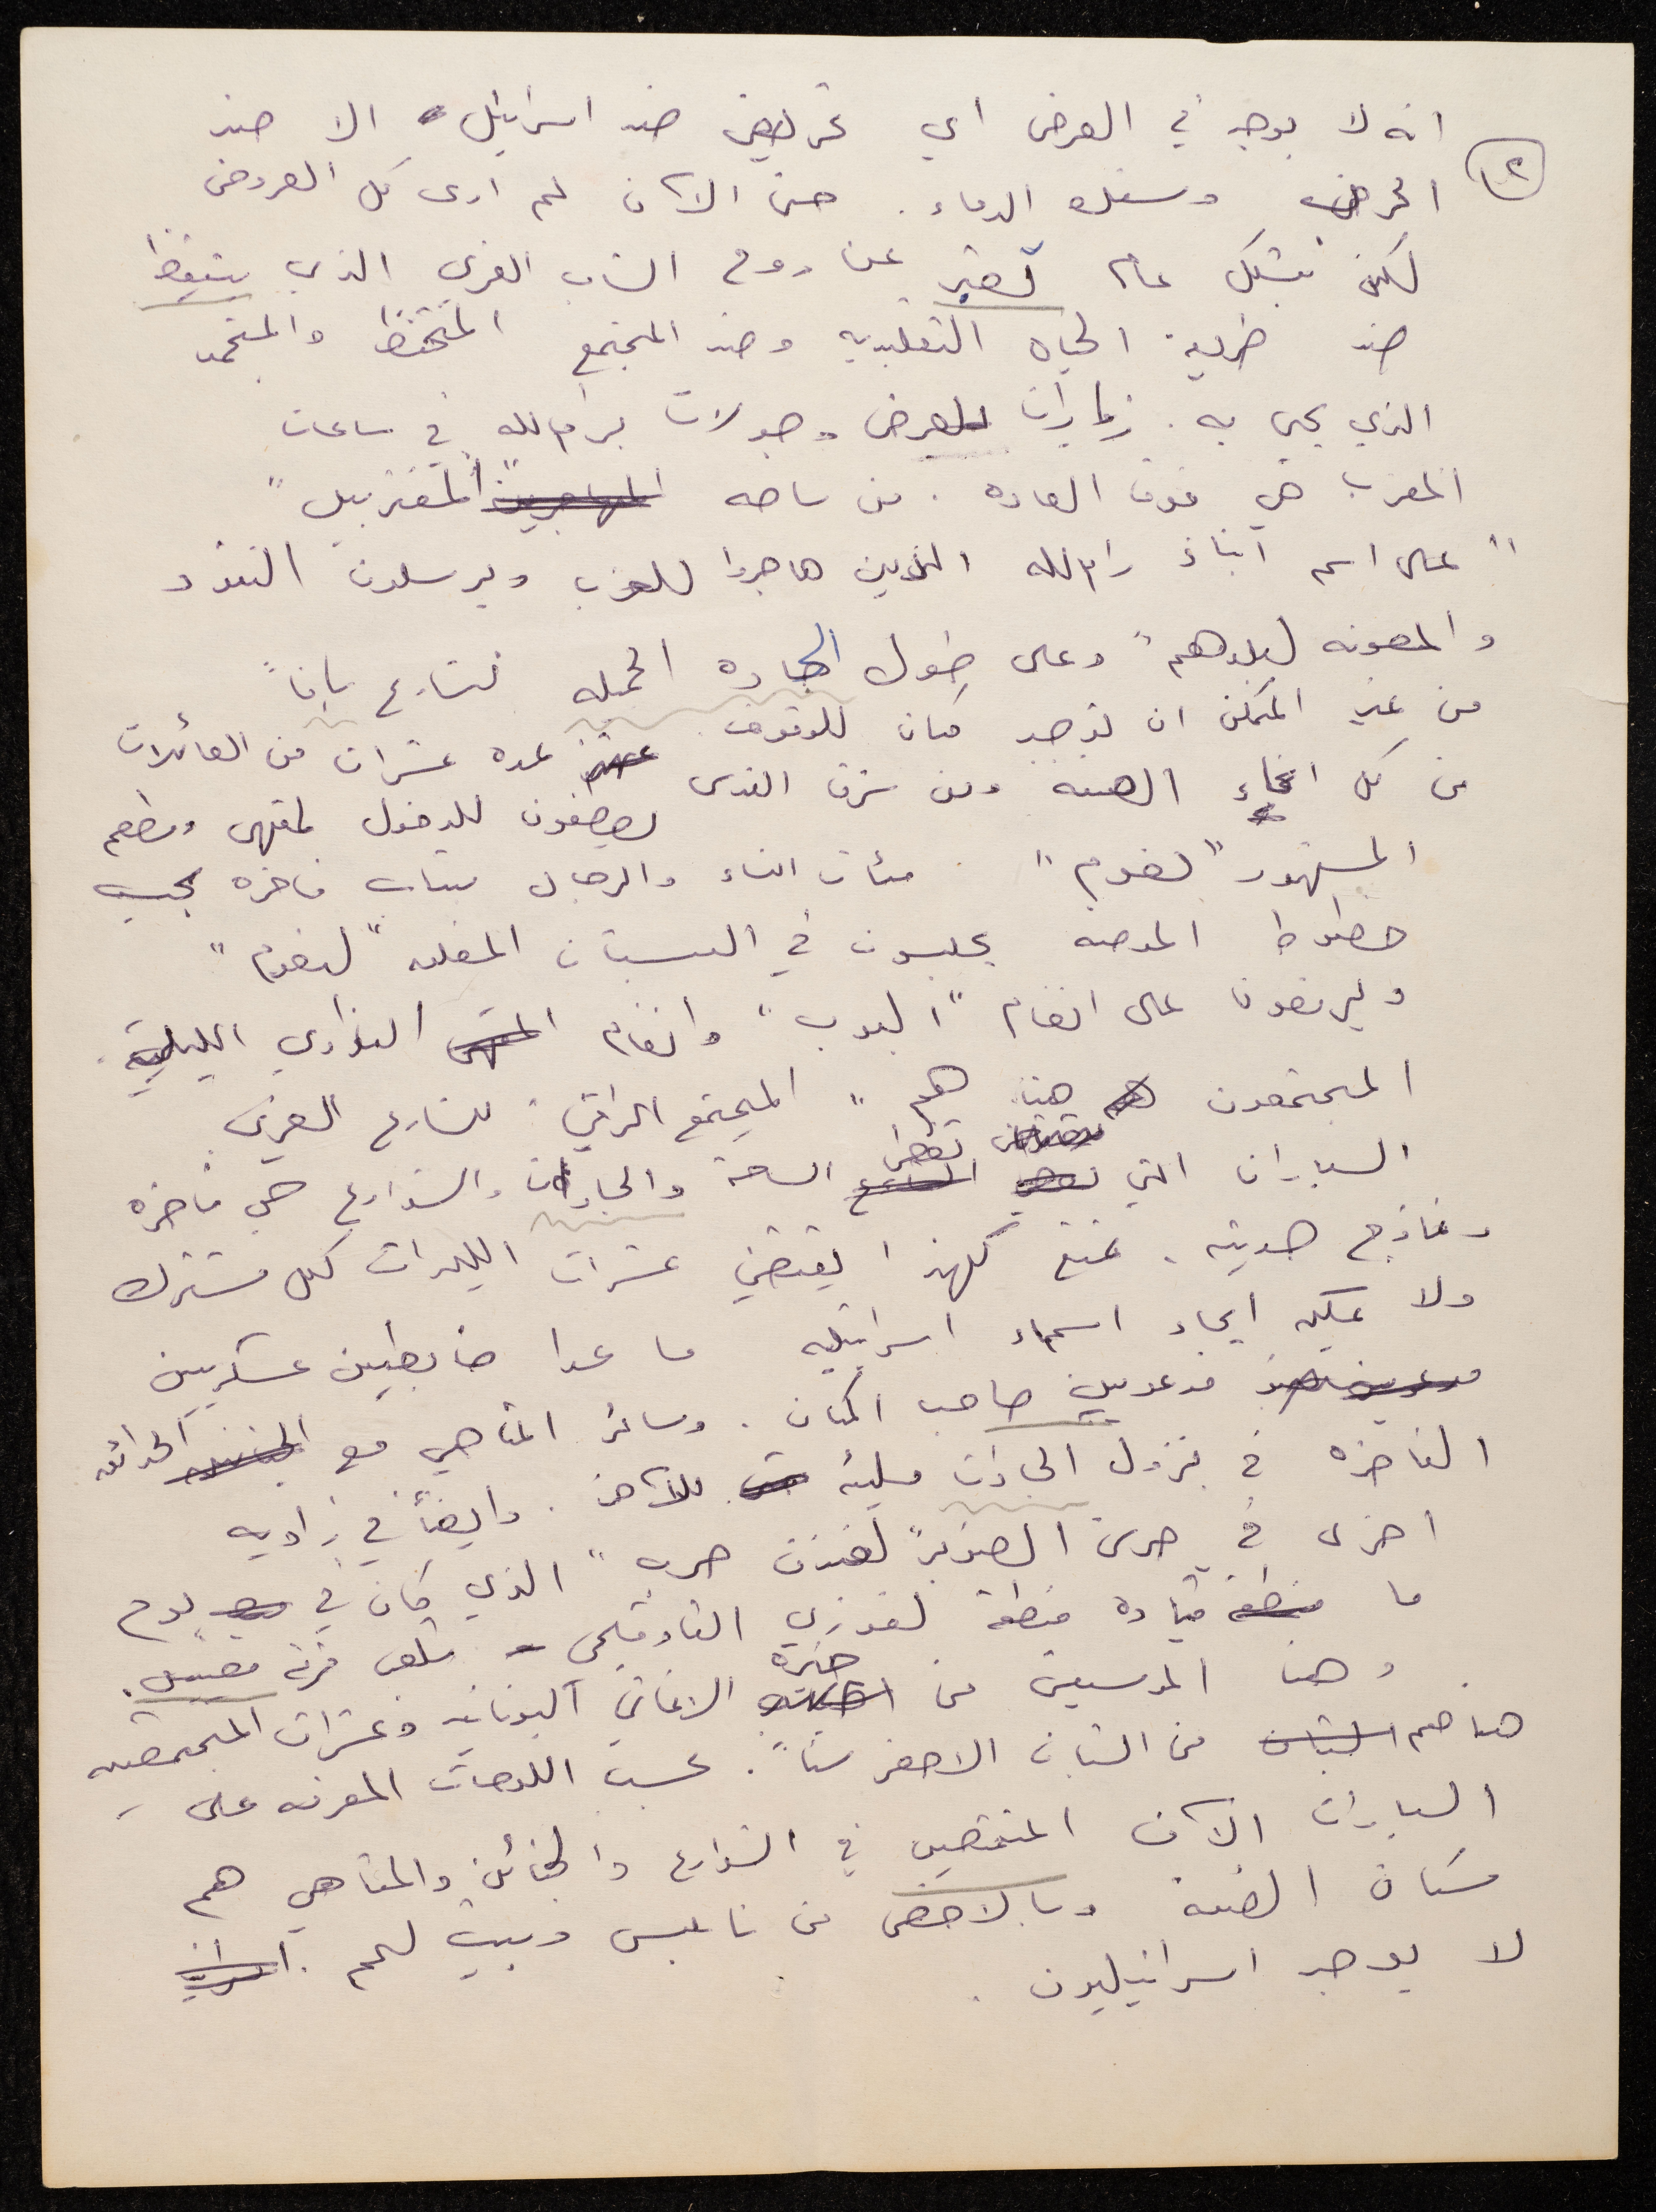 انه لا يوجد في العرض اي تحريض ضد اسرائيل الا ضد
٢
الحرب وسفك الدماء. حتى الآن لم ارى كل العروض
لكن بشكل عام تعبر عن روح الشاب العربي الذي يتيقظ
ضد طريقة الحياه التقليديه وضد المجتمع المتحفظ والمتجمد
الذي يحيى به. زيارات للعرض وجولات برام الله في ساعات
المغرب هي فوق العاده. من ساحه المهاجرين "المغتربين"
"على اسم ابناء رام الله الذين هاجروا للغرب ويرسلون النقود
والمعونه لبلدهم" وعلى طول الجاده الجميله لشارع يافا
من غير الممكن ان توجد مكان للوقوف. عدة عشرات من العائلات
من كل انحاء الضفه ومن شرق القدس يصطفون للدخول لمقهى ومطعم
المشهور "نعوم" مئات النساء والرجال بثياب فاخره بحسب
خطوط الموضه يجلسون في البستان المغلق "لنعوم"
ويرقصون على انغام "البوب" وانغام النوادي الليلية.
المجتمعون هنا هم "المجتمع الراقي" للشارع العربي.
السيارات التي تغطي الساحة والجادات والشوارع هي فاخره
ونماذج حديثه. تمتع كهذا يقتضي عشرات الليرات لكل مشترك
ولا يمكن ايجاد اسماء اسرائيليه ما عدا ضابطين عسكريين
مدعوين صاحب المكان. وسائر المقاهي مع الحدائق
الفاخره في نزول الجادات مليئه للآخر. وايضاً في زاويه
اخرى في حرش الصنوبر "لفندق حرب" الذي كان في يوم
ما قيادة منطقة لفوزي القاوقجي - تلعب فرقه
وهنا الموسيقى من خيرة الاغاني اليونانيه وعشرات المجتمعين
هنا هم من الشبان الاصغر سناً. بحسب اللوحات المعرفه على
السيارات الآن المتمتعين في الشوارع والجنائن والمقاهي هم
سكان الضفة وبالاخص من نابلس وبيت لحم.
لا يوجد اسرائيليون.